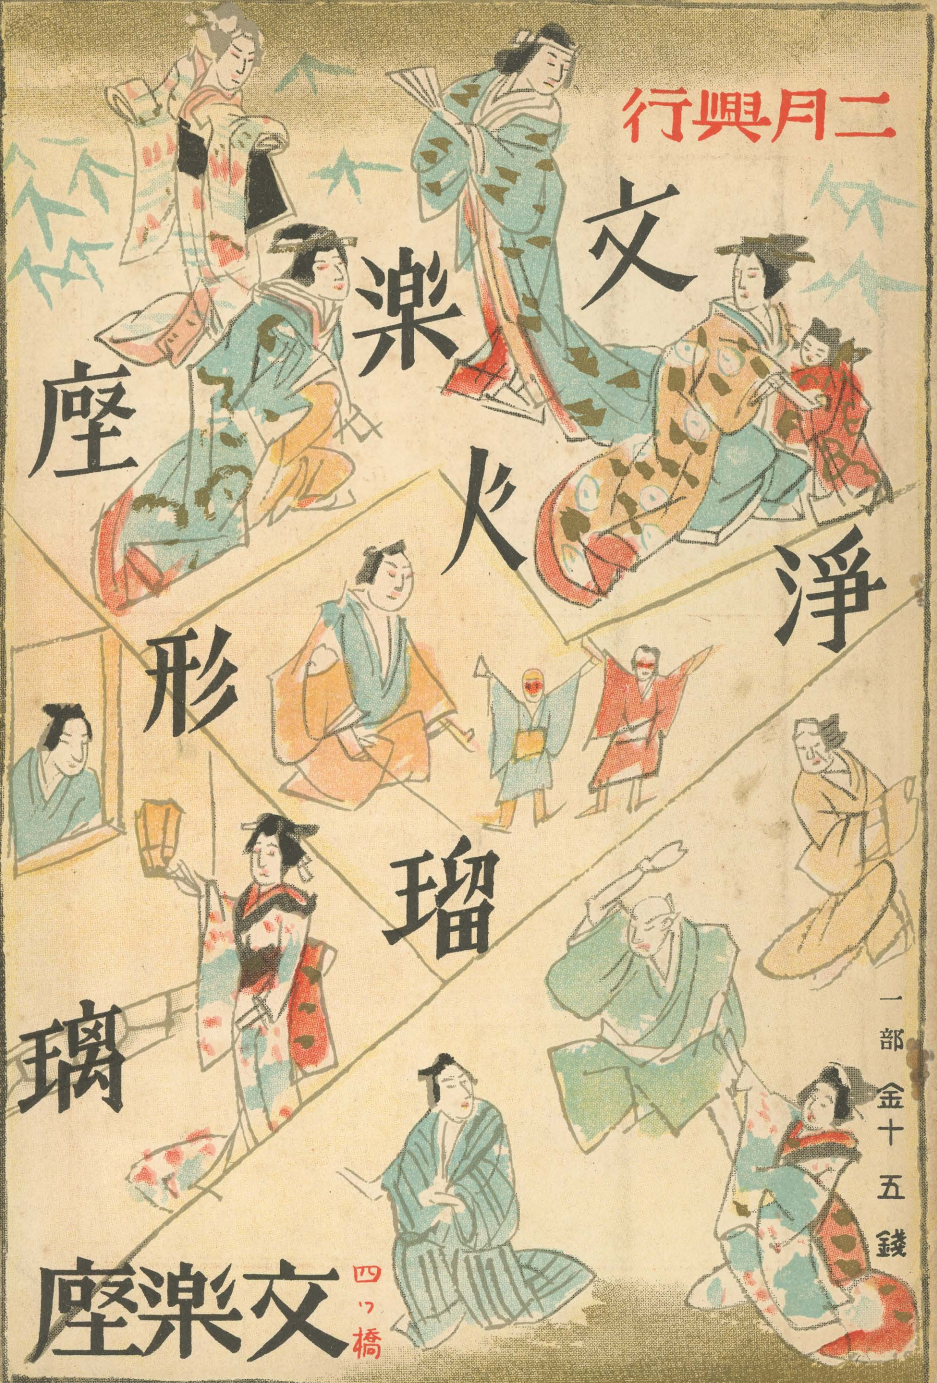 二月興行
文楽座
人形
淨瑠璃
一部 金十五錢
四ツ橋
文楽座